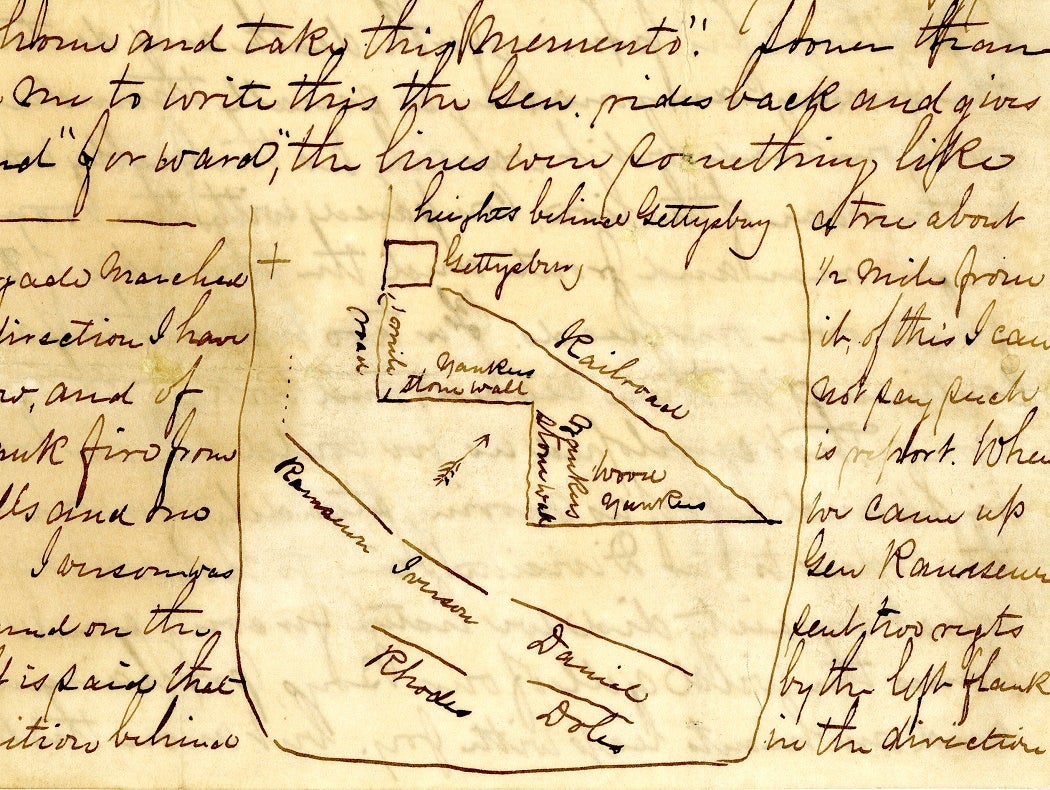 home and take this Memento". Sooner than
me to write this the Gen. rides back and gives
"forward", the lines were something like
gade Marched
direction I have
and of
fire from
and no
Iverson was
on the
is said that
ition behind
heights behind Gettysburg
Gettysburg
road
1/2 mile
Railroad
Yankees
stone wall
Yankees
stone wall
Wood
Yankees
Ramseur
Iverson
Daniel
Rhodes
Doles
a tree about
1/2 mile from
it, of this I can
not say such
is report. When
we came up
Gen Ramseur
sent two regts
by the left flank
in the direction